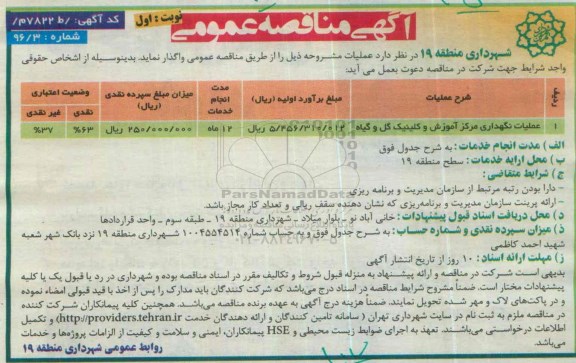 آگهی مناقصه عمومی
نوبت : اول
کد آگهی: /ط ۷۸۲۲/م
شماره : ۹۶/۳
شهرداری منطقه ۱۹ در نظر دارد عملیات مشروحه ذیل را از طریق مناقصه عمومی واگذار نماید. بدینوسیله از اشخاص حقوقی
واجد شرایط جهت شرکت در مناقصه دعوت بعمل می آید:
ردیف | شرح عملیات | مبلغ برآورد اولیه (ریال) | مدت انجام خدمات | میزان مبلغ سپرده نقدی (ریال) | وضعیت اعتباری
نقدی | غیر نقدی
۱ | عملیات نگهداری مرکز آموزش و کلینیک گل و گیاه | ۵/۴۵۶/۳۱۰/۰۱۲ ریال | ۱۲ ماه | ۲۵۰/۰۰۰/۰۰۰ ریال | ۶۳% | ۳۷%
الف) مدت انجام خدمات: به شرح جدول فوق
ب) محل ارایه خدمات: سطح منطقه ۱۹
ج) شرایط متقاضی:
- دارا بودن رتبه مرتبط از سازمان مدیریت و برنامه ریزی
- ارائه پرینت سازمان مدیریت و برنامه‌ریزی که نشان دهنده سقف ریالی و تعداد کار مجاز باشد.
د) محل دریافت اسناد قبول پیشنهادات: خانی آباد نو - بلوار میلاد - شهرداری منطقه ۱۹ - طبقه سوم - واحد قراردادها
ذ) میزان سپرده نقدی و شماره حساب: به شرح جدول فوق و به حساب شماره ۱۰۰۴۵۵۴۵۱۴ شهرداری منطقه ۱۹ نزد بانک شهر شعبه
شهید احمد کاظمی
ز) مهلت ارائه اسناد: ۱۰ روز از تاریخ انتشار آگهی
بدیهی است شرکت در مناقصه و ارائه پیشنهاد به منزله قبول شروط و تکالیف مقرر در اسناد مناقصه بوده و شهرداری در رد یا قبول یک یا کلیه
پیشنهادات مختار است. ضمناً مشروح شرایط مناقصه در اسناد درج می‌باشد که شرکت کنندگان باید مدارک را پس از اخذ با قید قبولی امضاء نموده
و در پاکت‌های لاک و مهر شده تحویل نمایند. ضمناً هزینه درج آگهی به عهده برنده مناقصه می‌باشد. همچنین کلیه پیمانکاران شرکت کننده
در مناقصه ملزم به ثبت نام در سایت شهرداری تهران ( سامانه تامین کنندگان و ارائه دهندگان خدمت http://providers.tehran.ir) و تکمیل
اطلاعات درخواستی می‌باشند. تعهد به اجرای ضوابط زیست محیطی و HSE پیمانکاران، ایمنی و سلامت و کیفیت از الزامات پروژه‌ها و خدمات
می‌باشد.
روابط عمومی شهرداری منطقه ۱۹
ParsNamadData
۰۲۱-۸۸۳۴۹۶۷۰-۵